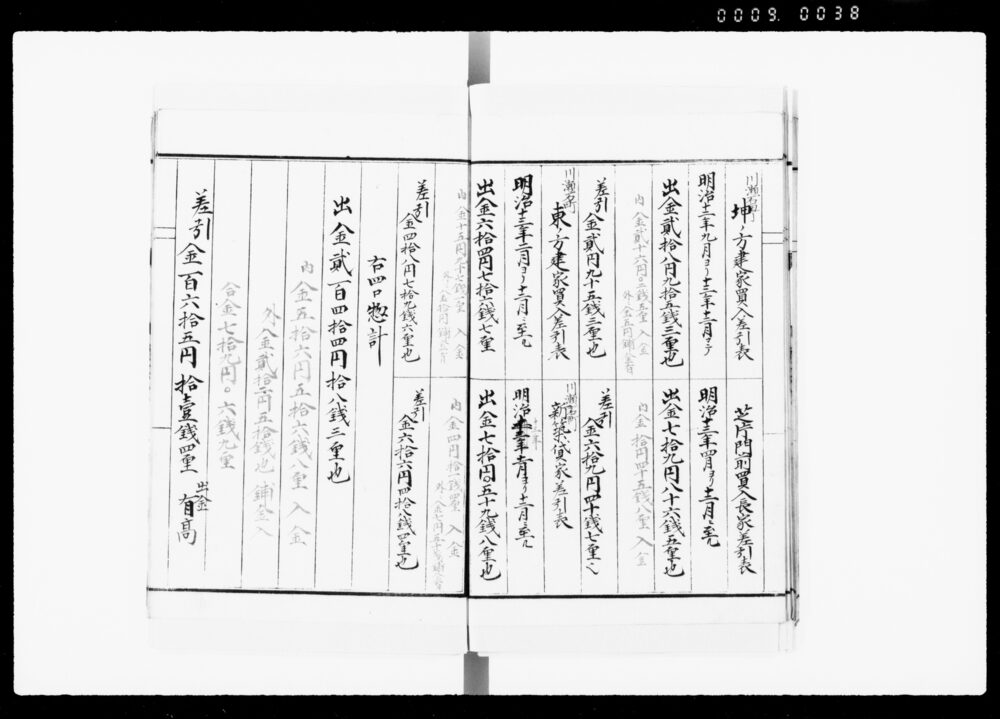 0009. 0038
川瀬石町
坤ノ方建家買入差引表
明治十二年九月ヨリ十三年十二月マテ
出金貳拾八円九拾五銭三厘也
内 金貳十六円〇二銭五厘 入金
外 金五円 補金有
差引金貳円九十五銭三厘也
芝片門前買入長家差引表
明治十三年四月ヨリ十二月ニ至ル
出金七拾九円八十六銭五厘也
内 金拾円四十五銭八厘 入金
差引金六拾九円四十銭七厘也
川瀬石町
東ノ方建家買入差引表
明治十三年二月ヨリ十二月ニ至ル
出金六拾四円七拾六銭七厘
内 金十五円九十七銭一厘 入金
差引
金四拾八円七拾九銭六厘也
川瀬石町
新築貸家差引表
出金七拾円〇五十九銭八厘也
内 金四円拾一銭四厘 入金
差引
金六拾六円四拾八銭四厘也
右四口惣計
出金貳百四拾四円拾八銭三厘也
内 金五拾六円五拾六銭八厘 入金
外入金貳拾二円五拾銭也 鋪金入
合金七拾九円〇六銭九厘
差引金百六拾五円拾壹銭四厘
出金
有高